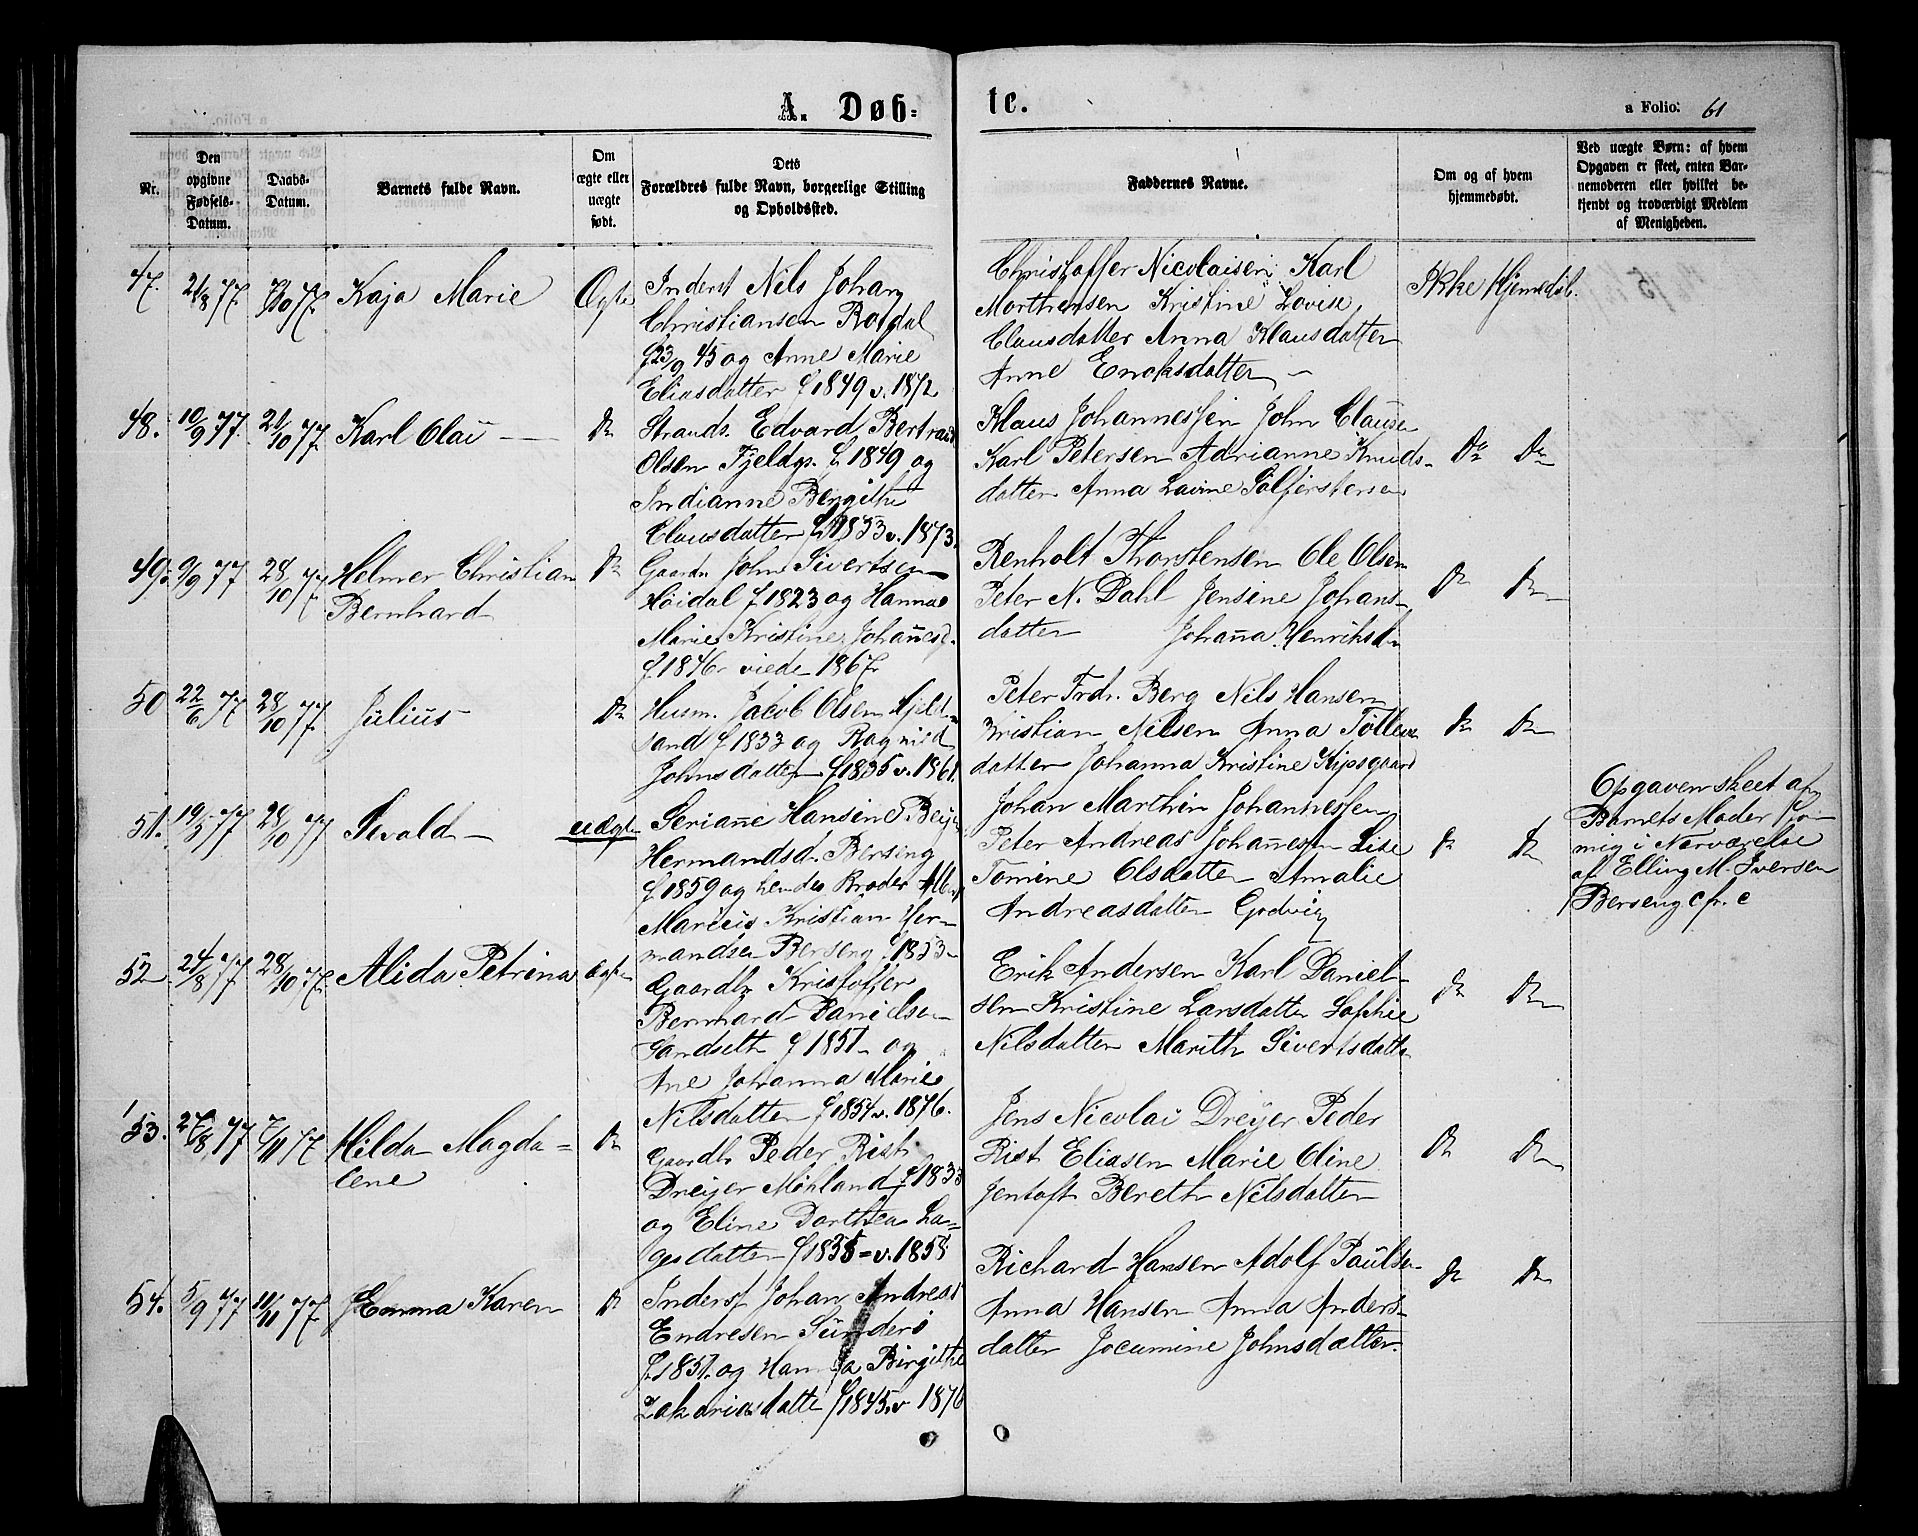 A. Døb=
te.
a Folio. 61
Nr.
Den opgivne Fødsels-Datum.
Daabs-Datum.
Barnets fulde Navn.
Om ægte eller uægte født.
Dets Forældres fulde Navn, borgerlige Stilling og Opholdssted.
Faddernes Navne.
Om og af hvem hjemmedøbt.
Ved uægte Børn: af hvem Opgaven er skeet, enten Barnemoderen eller hvilket bekjendt og troværdigt Medlem af Menigheden.
47. 21/8 77. 7/10 77. Kaja Marie Ægte
Inderst Nils Johan
Christiansen Rotdal
f 23/9 45 og Anne Marie
Eliasdatter f 1849 v. 1872
Christoffer Nicolaisen Karl
Morthensen Kristine Lovise
Clausdatter Anna Klausdatter
Anne Enoksdatter
Ikke Hjemedøb.
48. 10/9 77. 21/10 77. Karl Olai Do
Strands. Edvard Bertrand
Olsen Fjeldgs. f. 1849 og
Indianne Bergithe
Clausdatter f. 1853 v. 1873.
Klaus Johannessen John Clausen
Karl Petersen Adrianne Knuds-
datter Anna Lavine
Do Do
49. 9/9 77 28/10 77. Helmer Christian
Bernhard
Do
Gaardr John Sivertsen
Høidal f 1823 og Hanna
Marie Kristine Johanesd.
f 1846 viede 1867
Renholt Thorstensen Ole Olsen
Peter N. Dahl Jensine Johans-
datter Johanna Henriksd
Do Do
50 22/6 77 28/10 77. Julius Do
Husm. Jacob Olsen Hjeld-
sand f 1833 og Ragnild
Johnsdatter f 1835 v. 1861.
Peter Frdr. Berg Nils Hansen
Kristian Nilsen Anna Tollevs
datter Johanna Kristine Kipsgaard
Do Do
51. 19/3 77 28/10 77 Sevald uægte
Serianne Hansine
Hermandsd. Berseng
f 1859 og hendes Broder
Marcus Kristian Her-
mandsen Berseng f. 1853
Johan Marthin Johannessen
Peter Andreas Johannessen Lise
Tomine Olsdatter Amalie
Andreasdatter Godvig
Do Do
Opgaven skeet af
Barnets Moder for
mig i Nærværelse
af Elling M. Iversen
Berseng cfr. c
52 24/8 77 28/10 77. Alida Petrina ægte
Gaardbr Kristoffer
Bernhard Danielsen
Sandseth f 1851 og
Ane Johanna Marie
Nilsdatter f 1854 v. 1876.
Erik Andersen Karl Daniel-
sen Kristine Larsdatter Sophie
Nilsdatter Marith Sivertsdatter
Do Do
53. 27/8 77 7/11 77. Hilda Magda=
lene
Do
Gaardbr Peder Rist
Dreyer Möhland f 1833
og Eline Dorthea La=
gesdatter f 1835 = v. 1858
Jens Nicolai Dreyer Peder
Rist Eliasen Marie Oline
Jentoft Bereth Nilsdatter
Do Do
54. 5/9 77 11/11 77. Emma Karen Do
Inderst Johan Andreas
Endresen Sunderö
f. 1851. og Hanna Birgithe
Zakariasdatte f 1845. v 1876
Richard Hansen Adolf Paulsen
Anna Hansen Anna Anders-
datter Jocumine Johnsdatter.
Do Do